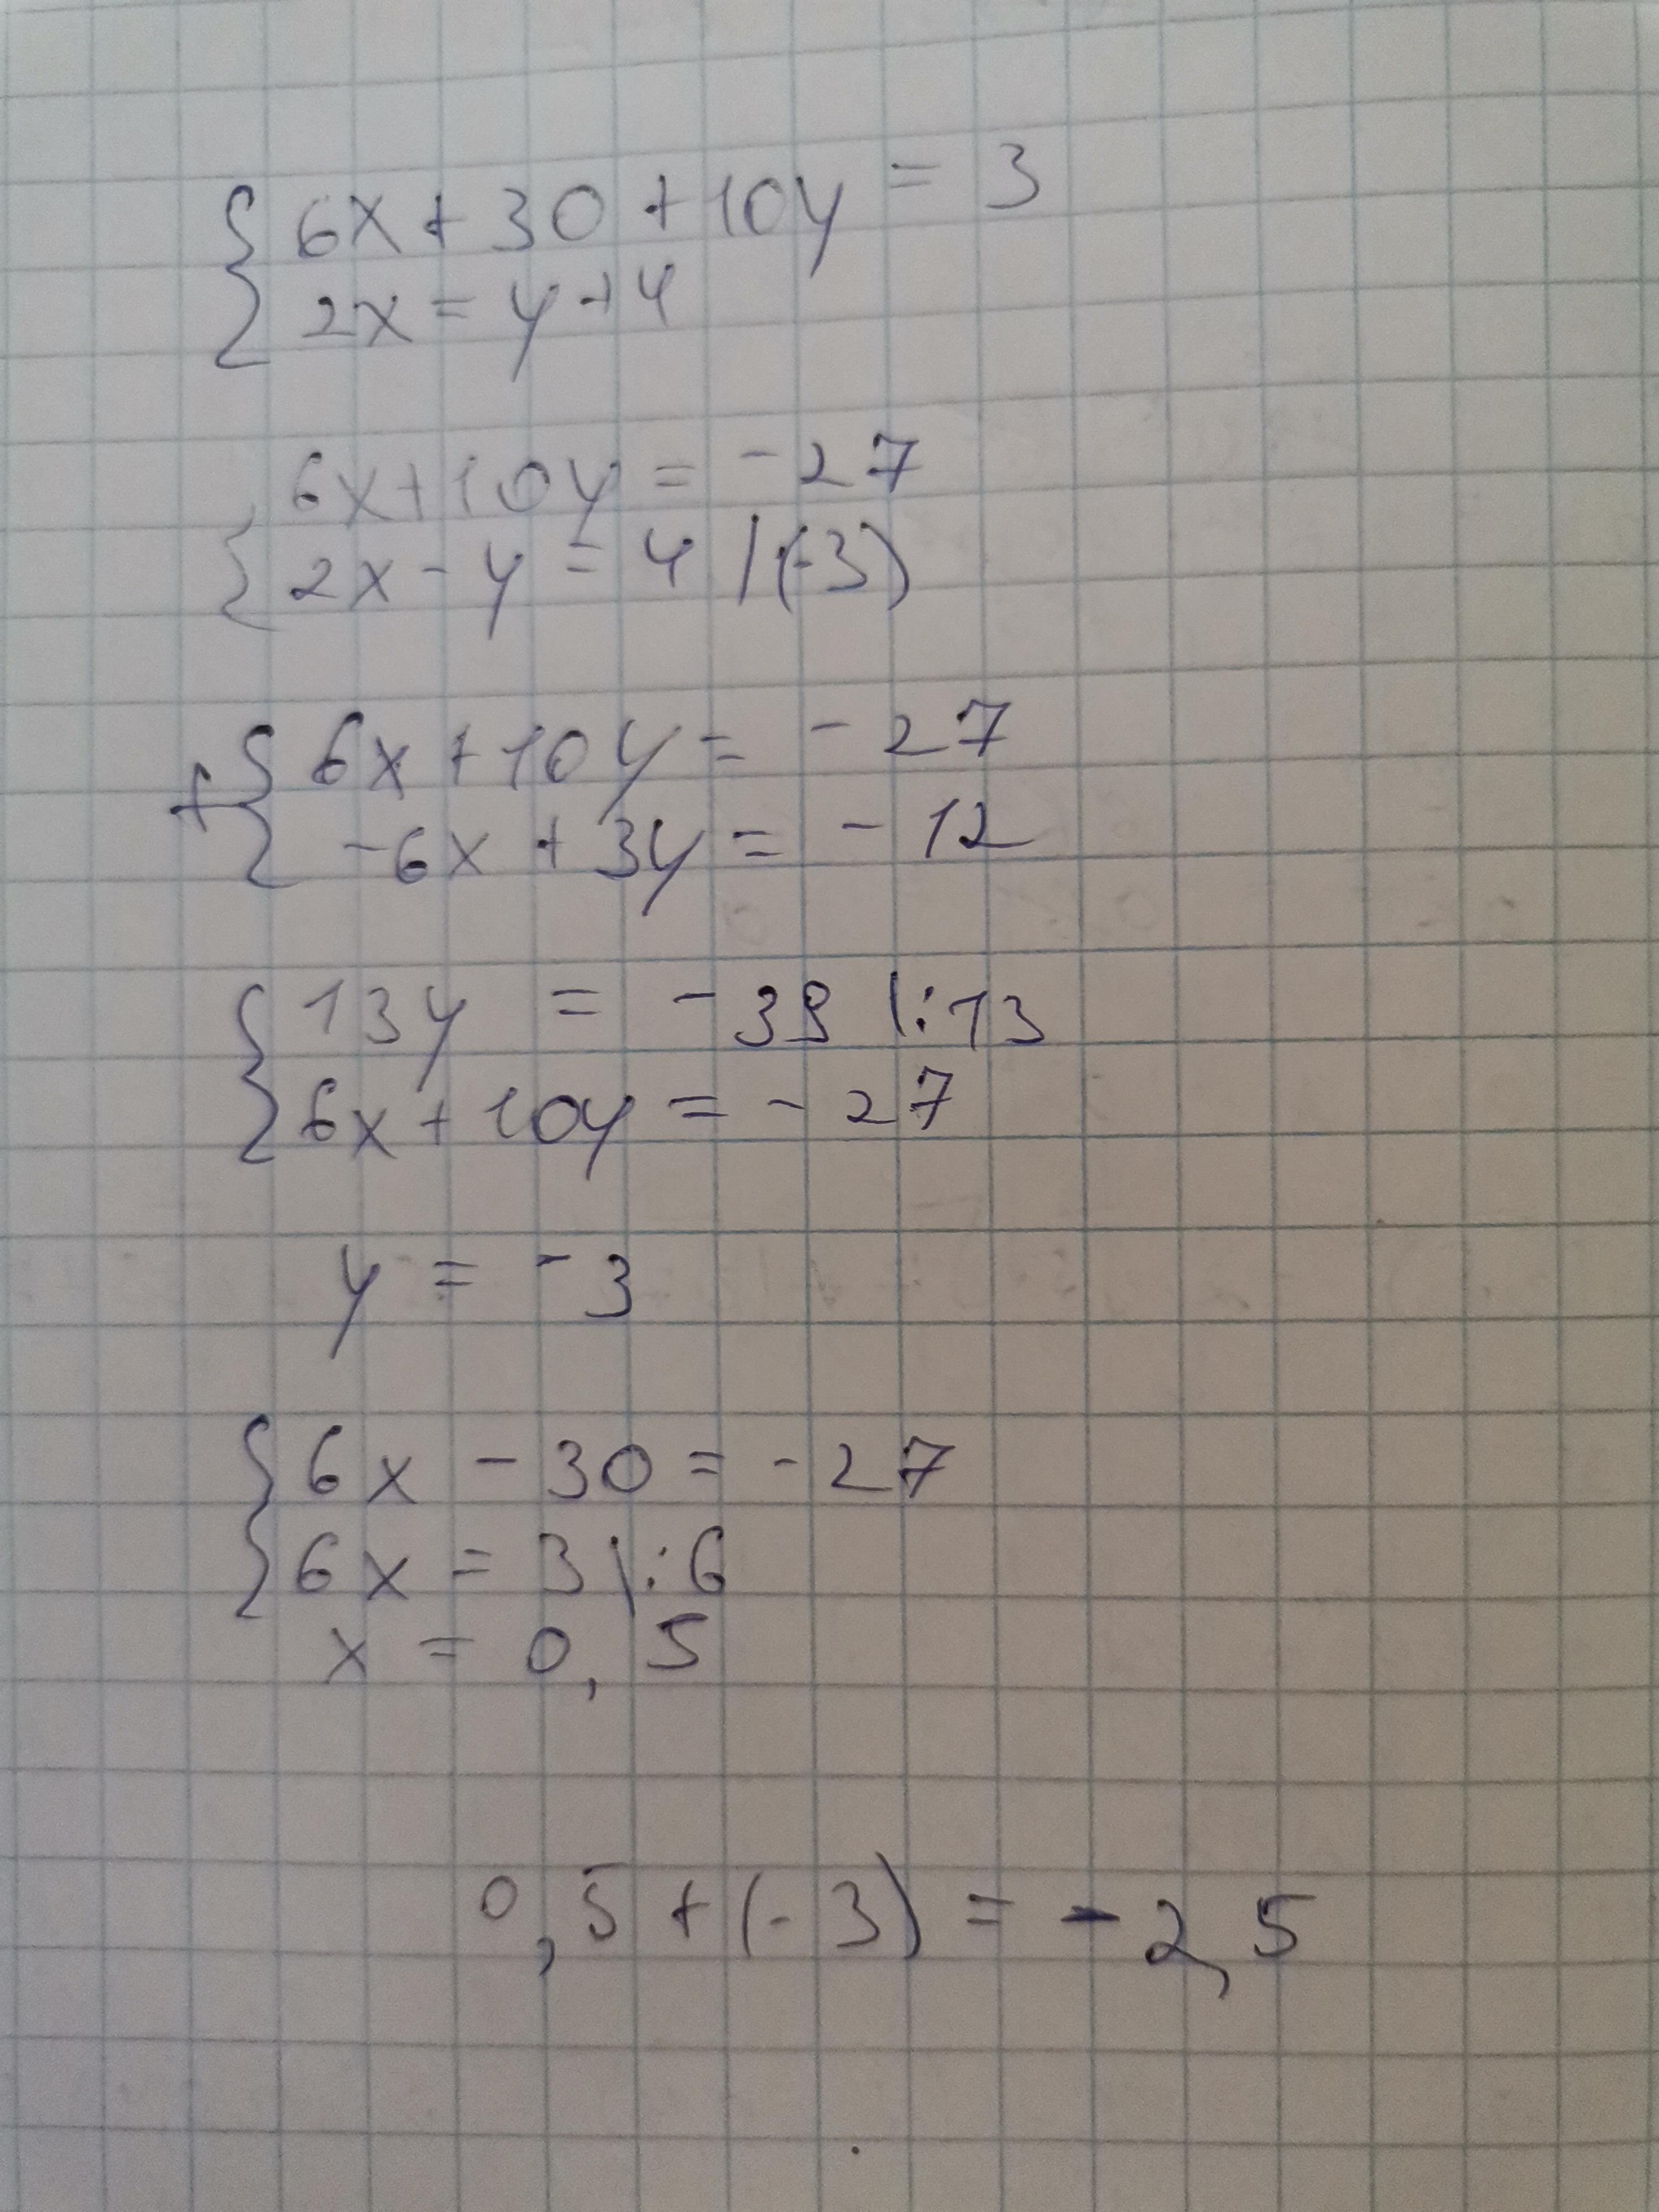 { 6x + 30 + 10y = 3
2x = y + 4
{ 6x + 10y = -27
2x - y = 4 |·(-3)
+ { 6x + 10y = -27
-6x + 3y = -12
{ 13y = -39 |:13
6x + 10y = -27
y = -3
{ 6x - 30 = -27
6x = 3 |:6
x = 0,5
0,5 + (-3) = -2,5